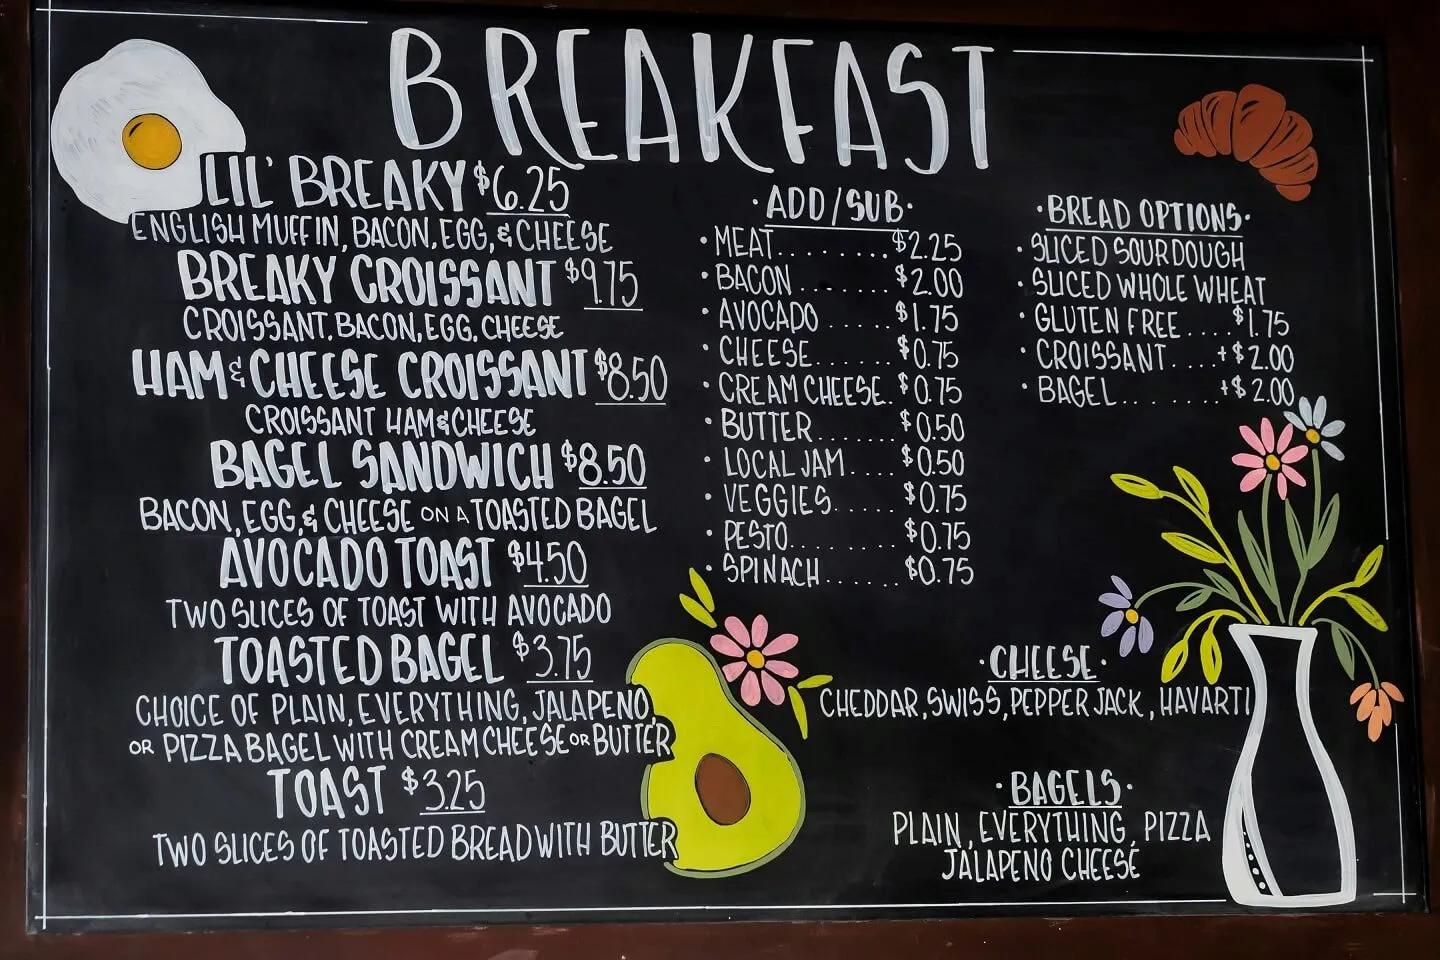 BREAKFAST
LIL' BREAKY $6.25
ENGLISH MUFFIN, BACON, EGG, & CHEESE
BREAKY CROISSANT $9.75
CROISSANT, BACON, EGG, CHEESE
HAM & CHEESE CROISSANT $8.50
CROISSANT HAM & CHEESE
BAGEL SANDWICH $8.50
BACON, EGG, & CHEESE ON A TOASTED BAGEL
AVOCADO TOAST $4.50
TWO SLICES OF TOAST WITH AVOCADO
TOASTED BAGEL $3.75
CHOICE OF PLAIN, EVERYTHING, JALAPENO,
OR PIZZA BAGEL WITH CREAM CHEESE OR BUTTER
TOAST $3.25
TWO SLICES OF TOASTED BREAD WITH BUTTER
·ADD/SUB·
·MEAT........$2.25
·BACON.......$2.00
·AVOCADO.....$1.75
·CHEESE......$0.75
·CREAM CHEESE.$0.75
·BUTTER......$0.50
·LOCAL JAM....$0.50
·VEGGIES.....$0.75
·PESTO.......$0.75
·SPINACH.....$0.75
·BREAD OPTIONS·
·SLICED SOURDOUGH
·SLICED WHOLE WHEAT
·GLUTEN FREE....$1.75
·CROISSANT....+$2.00
·BAGEL.......+$2.00
·CHEESE·
CHEDDAR, SWISS, PEPPER JACK, HAVARTI
·BAGELS·
PLAIN, EVERYTHING, PIZZA
JALAPENO CHEESE